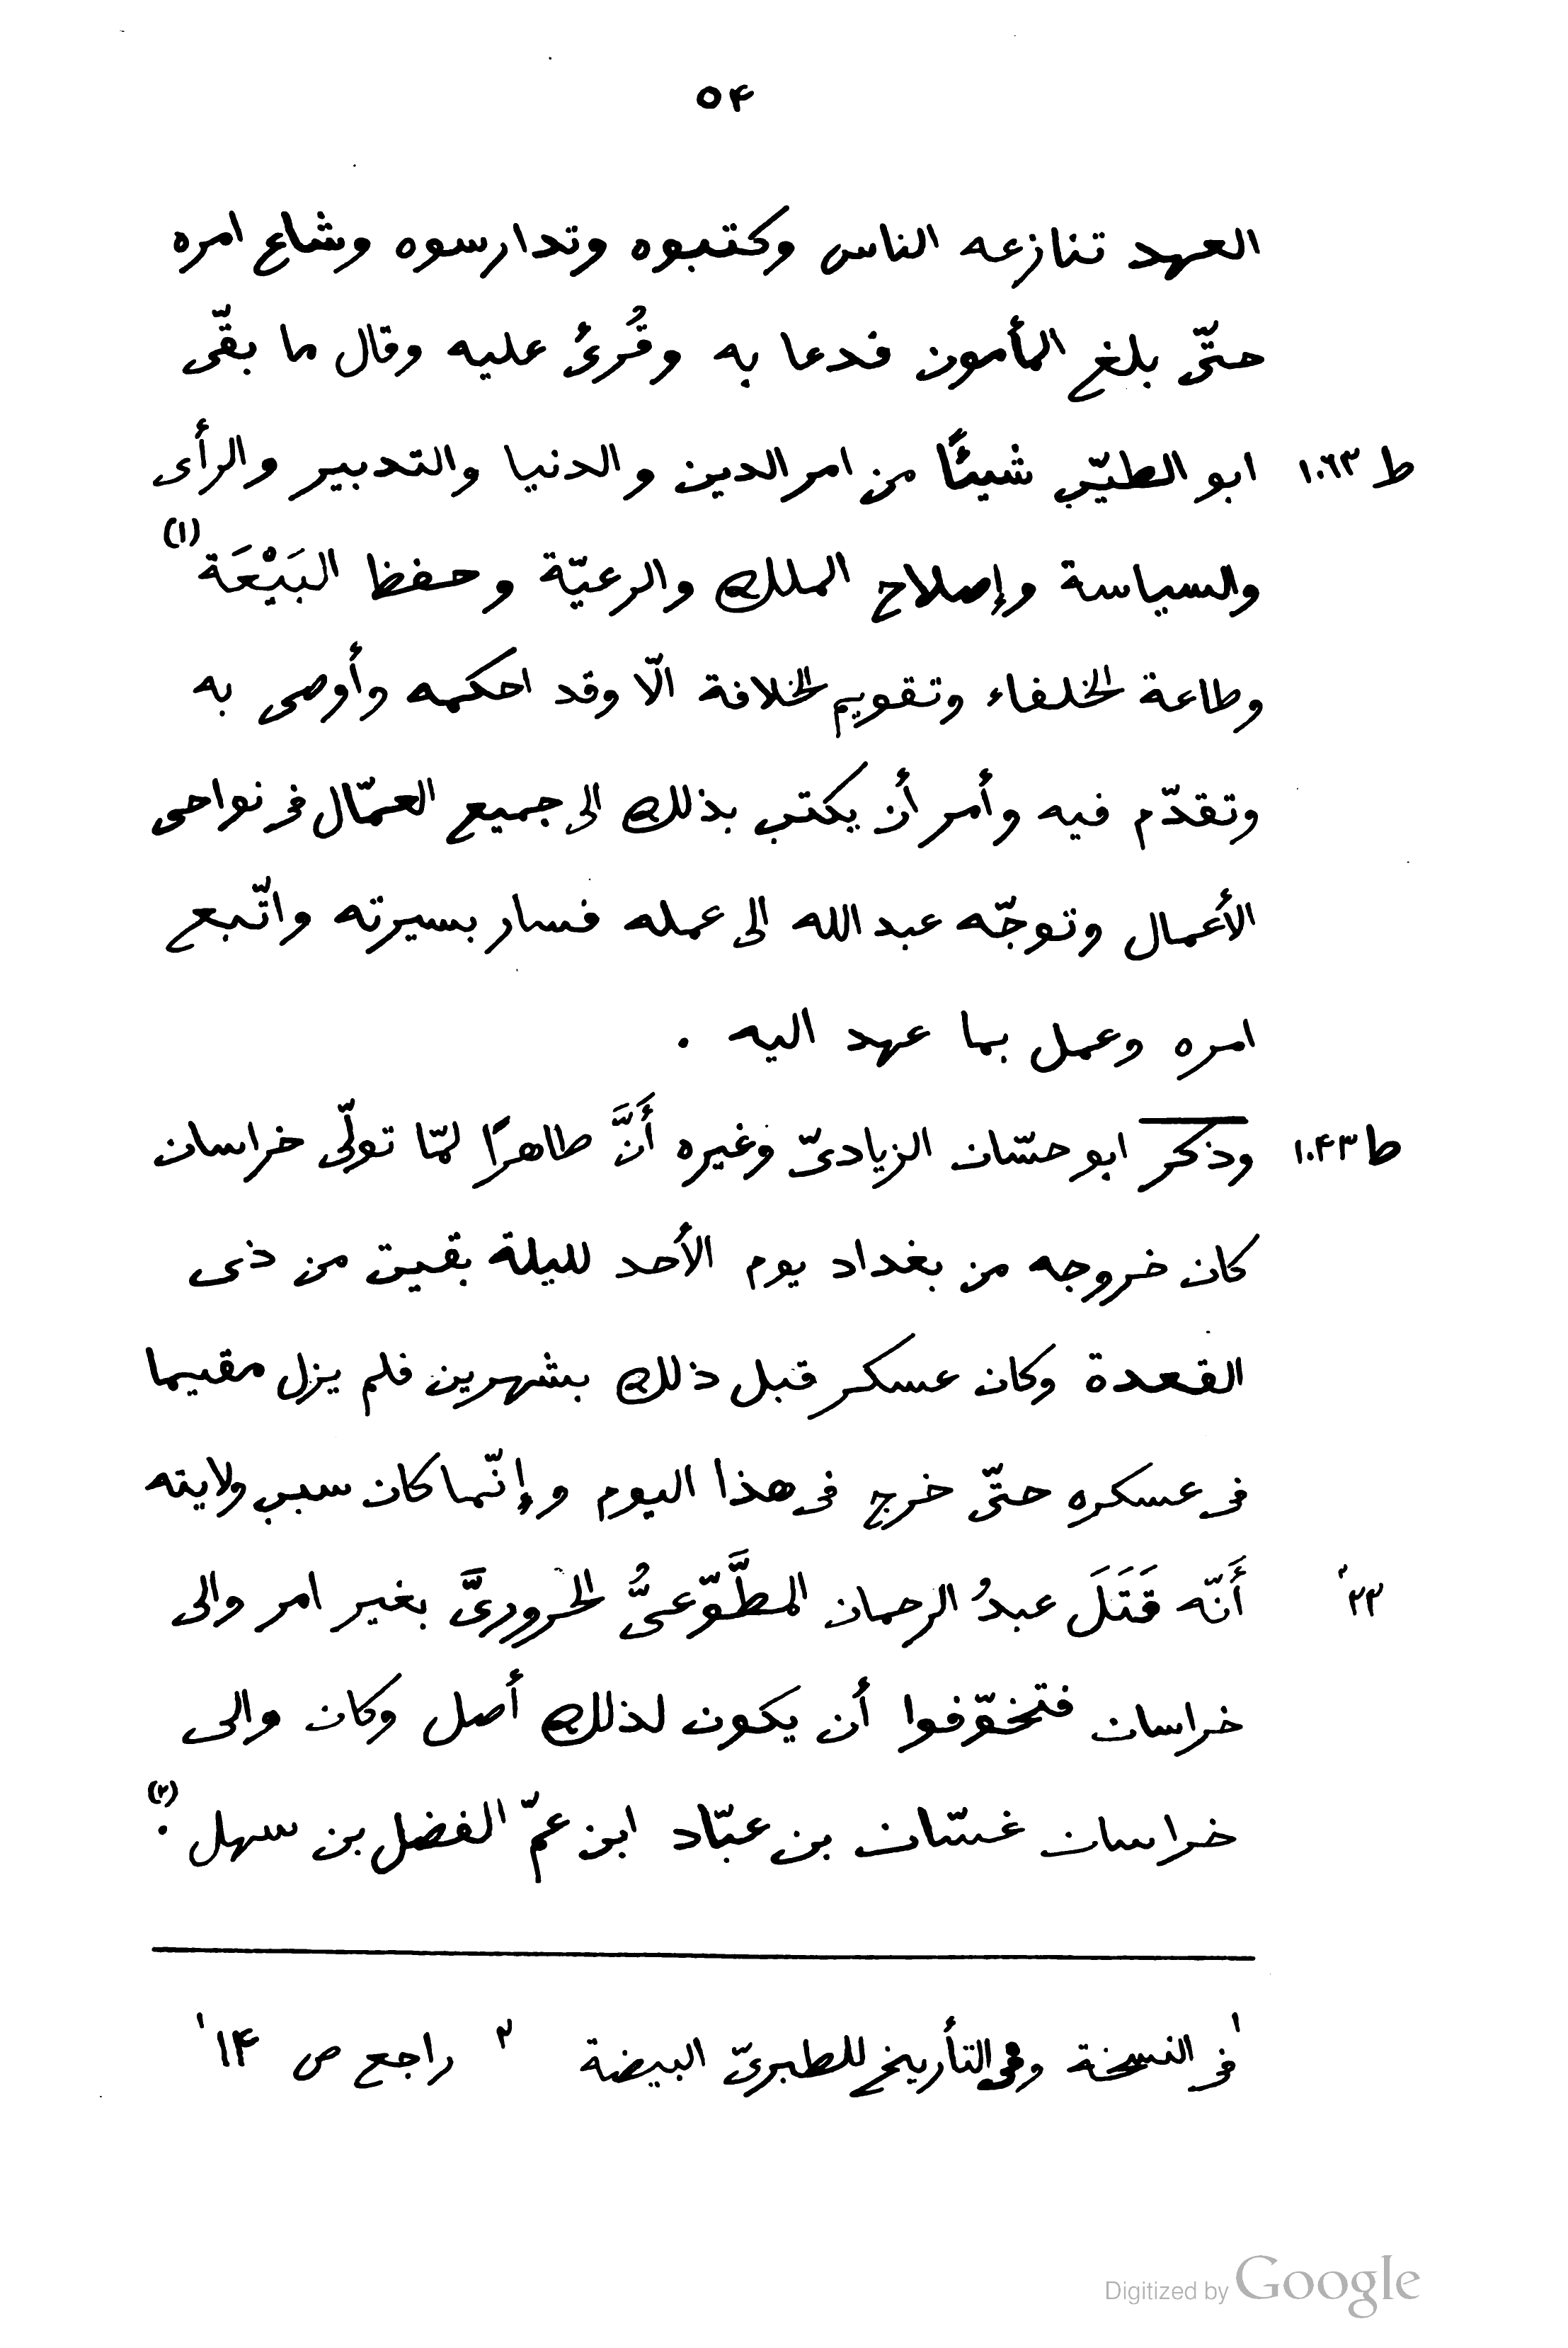 ٥۴
العهد تنازعه الناس وكتبوه وتدارسوه وشاع امره
حتّى بلغ المأمون فدعا به وقُرِئ عليه وقال ما بقّى
ط ١٠٦٣ ابو الطيّب شيئًا من امر الدين والدنيا والتدبير والرأى
والسياسة وإصلاح الملك والرعيّة وحفظ البَيْعَة (١)
وطاعة الخلفاء وتقويم الخلافة الّا وقد احكمه وأوصى به
وتقدّم فيه وأمر أن يكتب بذلك الى جميع العمّال فى نواحى
الأعمال وتوجّه عبد الله الى عمله فسار بسيرته واتّبع
امره وعمل بما عهد اليه .
ط ١٠۴٣ وذكر ابو حسّان الزيادىّ وغيره أَنَّ طاهرًا لمّا تولّى خراسان
كان خروجه من بغداد يوم الأحد لليلة بقيت من ذى
القعدة وكان عسكر قبل ذلك بشهرين فلم يزل مقيما
فى عسكره حتّى خرج فى هذا اليوم وإنّما كان سبب ولايته
أَنّه قَتَلَ عبدُ الرحمان المطَّوّعىُّ الحرورىَّ بغير امر والى
خراسان فتخوّفوا أن يكون لذلك أصل وكان والى
خراسان غسّان بن عبّاد ابن عمّ الفضل بن سهل . (٢)
١ فى النسخة وفى التأريخ للطبرىّ البيضة ٢ راجع ص ١۴ ١
Digitized by Google